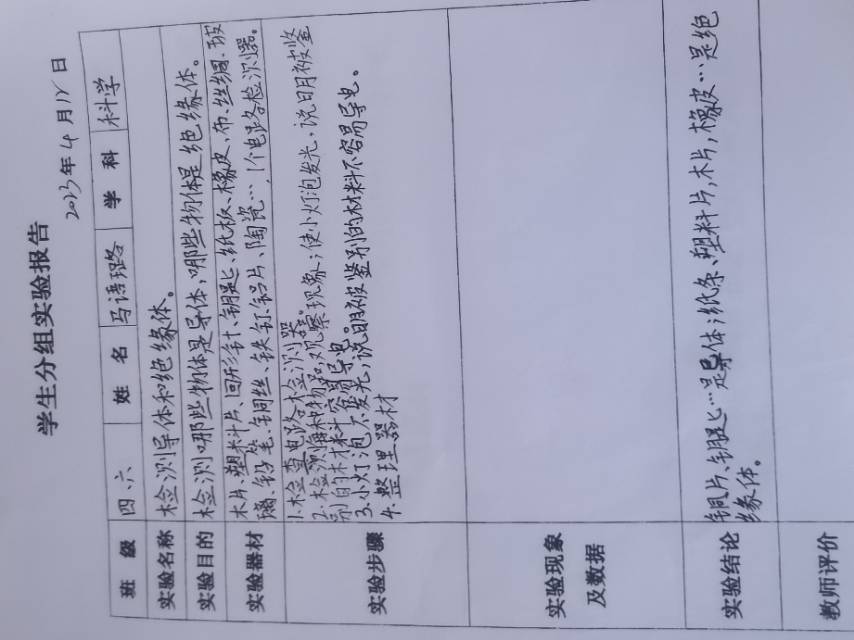 学生分组实验报告
2023年4月12日
班 级 四.六 姓 名 马语璐 学 科 科学
实验名称 检测导体和绝缘体。
实验目的 检测哪些物体是导体,哪些物体是绝缘体。
实验器材 木片、塑料片、回形针、钥匙、纸板、橡皮、布、丝绸、玻
璃、铅笔、铜丝、铁钉、铝片、陶瓷… 1个电路检测器。
实验步骤
1.检查电路检测器。
2.检测每种物品,观察现象;使小灯泡发光,说明被鉴
别的材料容易导电。
3.小灯泡不发光,说明被鉴别的材料不容易导电。
4.整理器材
实验现象
及数据
实验结论 铜片、钥匙…是导体;纸条、塑料片,木片,橡皮…是绝
缘体。
教师评价